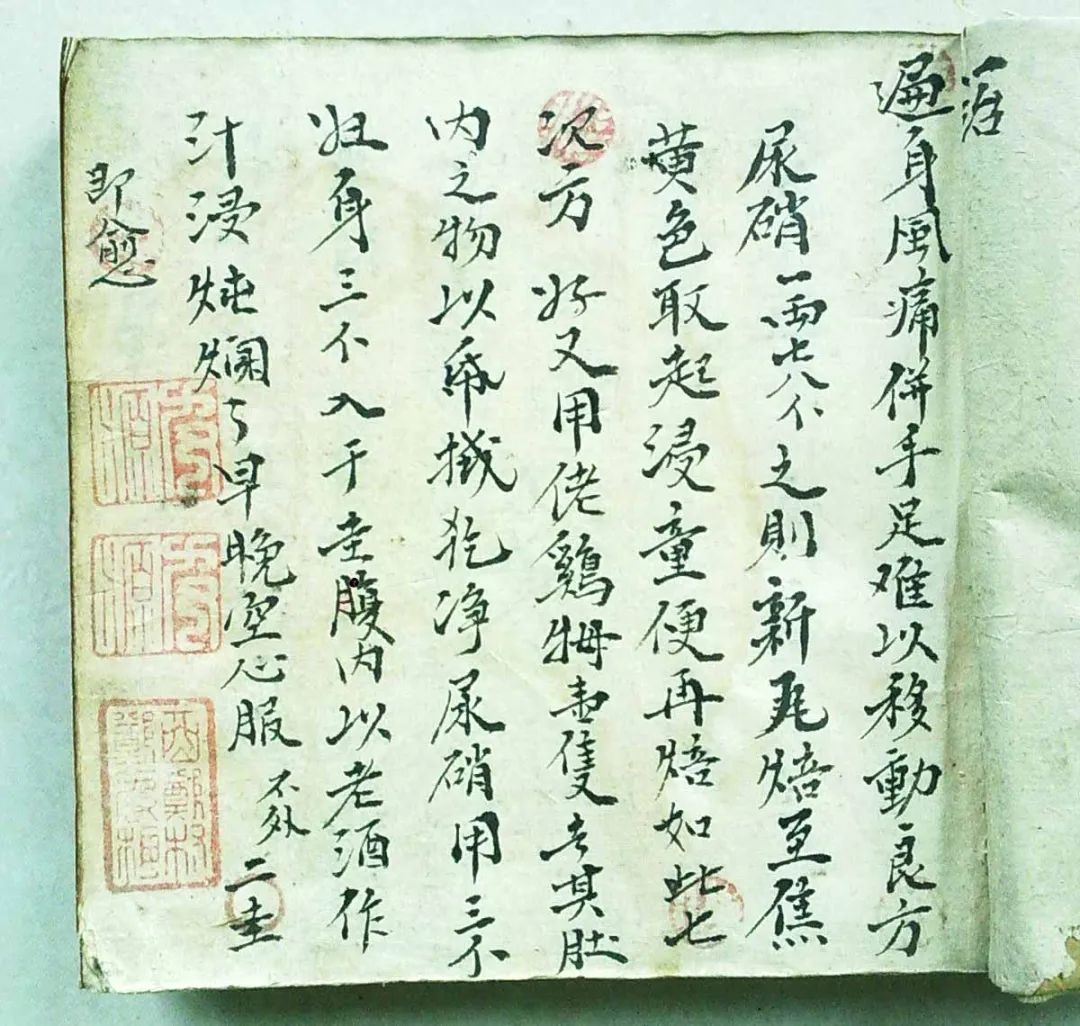 一治
遍身風痛併手足难以移動良方
尿硝一两七八个之則新瓦焙至焦
黄色取起浸童便再焙如此七
次方好又用佬鷄牳壹隻去其肚
内之物以布抐乾净尿硝用三个
妇身三个入于圭腹内以老酒作
汁浸炖爛了早晚空心服不外二圭
即愈
西鄭村